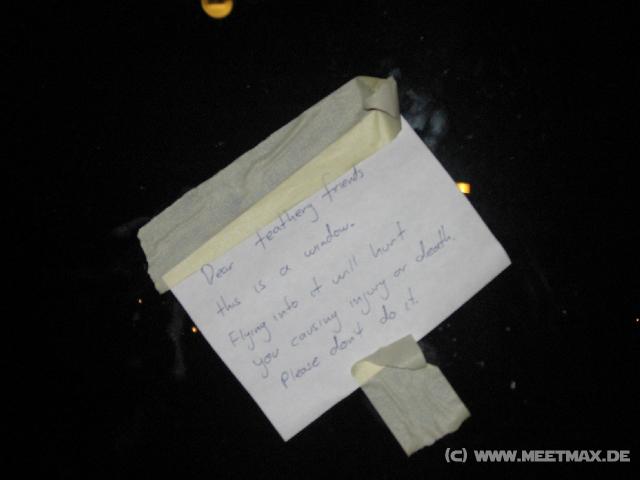 Dear feathery friends
this is a window.
Flying into it will hurt
you causing injury or death.
Please don't do it.
(C) WWW.MEETMAX.DE